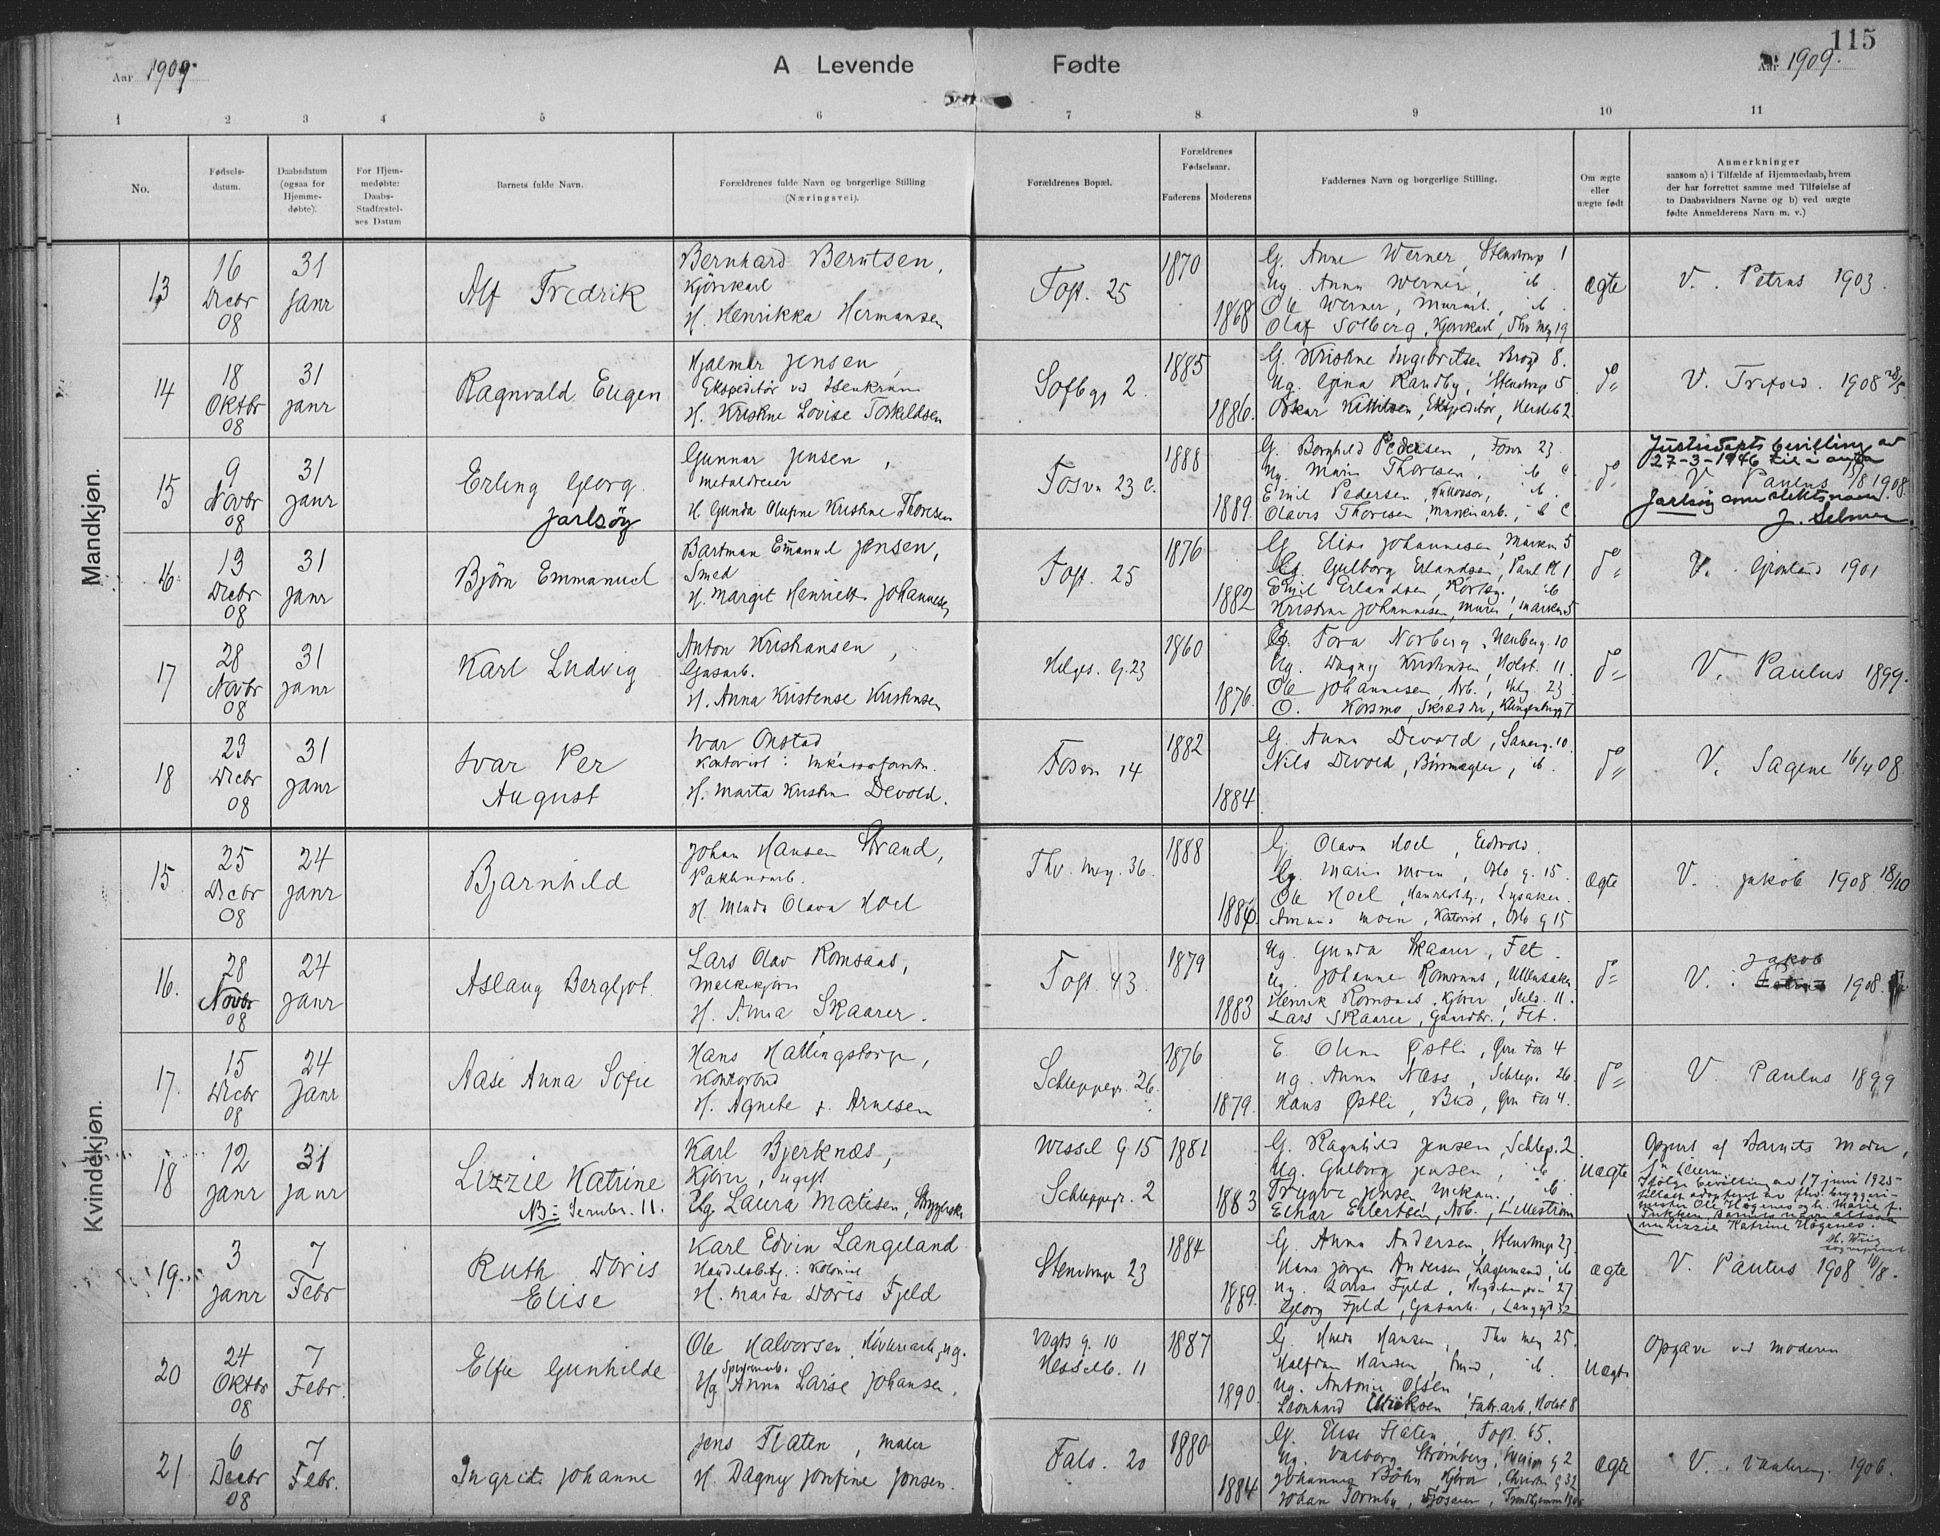 115
Aar 1909.
A Levende Fødte
Aar 1909.
1 2 3 4 5 6 7 8. 9 10 11
No.
Fødsels-
datum.
Daabsdatum
(ogsaa for
Hjemme-
døbte).
For Hjem-
medøbte:
Daabs-
Stadfæstel-
ses Datum
Barnets fulde Navn.
Forældrenes fulde Navn og borgerlige Stilling
(Næringsvei).
Forældrenes Bopæl.
Forældrenes
Fødselsaar.
Faderens Moderens
Faddernes Navn og borgerlige Stilling.
Om ægte
eller
uægte født
Anmerkninger
saasom a) i Tilfælde af Hjemmedaab, hvem
der har forrettet samme med Tilføielse af
to Daabsvidners Navne og b) ved uægte
fødte Anmelderens Navn m. v.)
Mandkjøn.
13
16
Decbr
08
31
Janr
Alf Fredrik
Bernhard Berntsen,
Kjørekarl
H. Henrikka Hermansen
Toft. 25
1870
1868
G. Anne Werner, Stenstrup 1
Ug. Anna Werner, ib.
Ole Werner, Murarb., ib.
Olaf Solberg, Kjørekarl, Thv Mey 19
ægte
V. Petrus 1903.
14
18
Oktbr
08
31
Janr
Ragnvald Eugen
Hjalmar Jensen,
Expeditør
H. Kristine Lovise Torkildsen
Sofbg 2.
1885
1886.
G. Kristine Ingebretsen
Ug. Gina Randby, Stenstrup 5
Oskar Kittilsen, Expeditør,
do
V. Trefold. 1908 28/5
15
9
Novbr
08
31
Janr
Erling Georg.
Jarlsøy
Gunnar Jensen,
Metaldreier
H. Gunda Olufine Kristine Thoresen
Fosvn 23 c.
1888
1889.
G. Borghild Pedersen, Fosvn 23.
Ug. Marie Thoresen, ib c.
Emil Pedersen, ib.
Olaves Thoresen, Murerarb., ib c
do
Justisdepts bevilling av
27-3-1946 til å anta
V. Paulus 1908.
Jarlsøy som slektsnavn.
J. Selmer.
16
13
Decbr
08
31
Janr
Bjørn Emmanuel
Bartman Emanuel Jensen,
Smed
H. Margit Henriette Johannesen
Toft. 25
1876
1882
G. Elise Johannesen, Marken 5
Ug. Gulborg Erlandsen, Paul Pl 1
Emil Erlandsen, ib
Kristian Johannesen, Murer, Marken 5
do
V. Grønland 1901
17
28
Novbr
08
31
Janr
Karl Ludvig
Anton Kristiansen,
Gasarb.
H. Anna Kristense Kristensen
Helges. G. 23
1860
1876.
G. Tora Norberg, Henberg. 10
Ug. Dagny Kristensen, Holst. 11.
Ole Johannesen, Arb., Helg 23.
O. Korsmo, Skrædder, Klingenbergt 7
do
V. Paulus 1899.
18
23
Decbr
08
31
Janr
Ivar Per
August
Ivar Onstad
Kontorist: Inkassoforretn.
H. Marta Kristine Devold.
Fosvn 14
1882
1884
G. Anna Devold, Saner g. 10.
Nils Devold, Børsmægler, ib.
do
V. Sagene 16/4 08.
Kvindekjøn.
15
25
Decbr
08
24
Janr
Bjarnhild
Johan Hansen Strand,
Pakhusarb.
H. Minda Olava Hoel
Thv. Mey. 36.
1888
1886
G. Olava Hoel, Eidsvold.
Ug. Marie Moen, Oslo g. 15.
Ole Hoel, Handelsbg., Lysaker.
Moen, Kontorist, Oslo g 15
ægte
V. Jakob 1908 18/10
16.
28
Novbr
08
24
Janr
Aslaug Bergljot.
Lars Olav Romsaas,
Melkekjører
H. Anna Skaarer.
Toft 43.
1879
1883
Ug. Gunda Skaarer, Fet.
Ug. Johanne Romsaas, Ullensaker
Henrik Romsaas, Kjører, Seils. 11.
Lars Skaarer, Gaardbr., Fet.
do
V. Jakob
1908.
17.
15
Decbr
08
24
Janr
Aase Anna Sofie
Hans Hallingstorp,
Kontorbud
H. Agnete f. Arnesen
Schleppegr. 26.
1876
1879.
E. Olene Østli, Øvre Fos 4
Ug. Anna Næss, Schlep. 26.
Hans Østli, Bud, Øvre Fos 4.
do
V. Paulus 1899
18
12
Janr
31
Janr
Lizzie Katrine
NB: Sernbr. 11.
Karl Bjerknæs,
Kjører, Ugift
Ug Laura Matisen, Strygerske
Wessel g 15
Schleppegr. 2
1881
1883
G. Ragnhild Jensen, Schlep. 2
Ug. Gulborg Jensen, ib
Trygve Jensen, ib.
Einar Eilertsen, Arb., Lillestrøm
Uægte
Opgivet af Barnets Moder,
Ifølge bevilling av 17 juni 1925
tillatt adoptert av fhv. bryggeri-
mester Ole Høgenes og h. Marie f.
Lizzie Katrine Høgenes.
19.
3
Janr
7
Febr
Ruth Doris
Elise
Karl Edvin Langeland
Handelsbetj: Kolonial
H. Marta Doris Fjeld
Stenstrup 23
1884
1889.
G. Anna Andersen, Stenstrup 23
Hans Jørgen Andersen, Lagermand, ib
Ug. Lovise Fjeld, 27
Georg Fjeld, Gasarb., Langgt 32
ægte
V. Paulus 1908 10/8.
20
24
Oktbr
08
7
Febr.
Elfie Gunhilde
Ole Halvorsen, Høvleriarb, ug.
Ug Anna Larse Johansen.
Vogts g. 10
Hesselb. 11
1887
1890.
G. Hulda Hansen, Thv Mey 25.
Halfdan Hansen, Smed, ib.
Ug. Antonie Olsen
Leonhard Eriksen, Fabr.arb, Holst 8
Uægte
Opgave ved moderen
21
6
Decbr
08
7
Febr.
Ingrid Johanne
Jens Flaten, Maler
H. Dagny Josefine Jonsen.
Fals. 20
1880
1884
G. Elise Flaten, Toft 65.
Ug. Valborg Strømberg, g 2
Johannes Bøhn, Kjører, Christies g 32
Johan Formby,
ægte
V. Vaalereng. 1906.